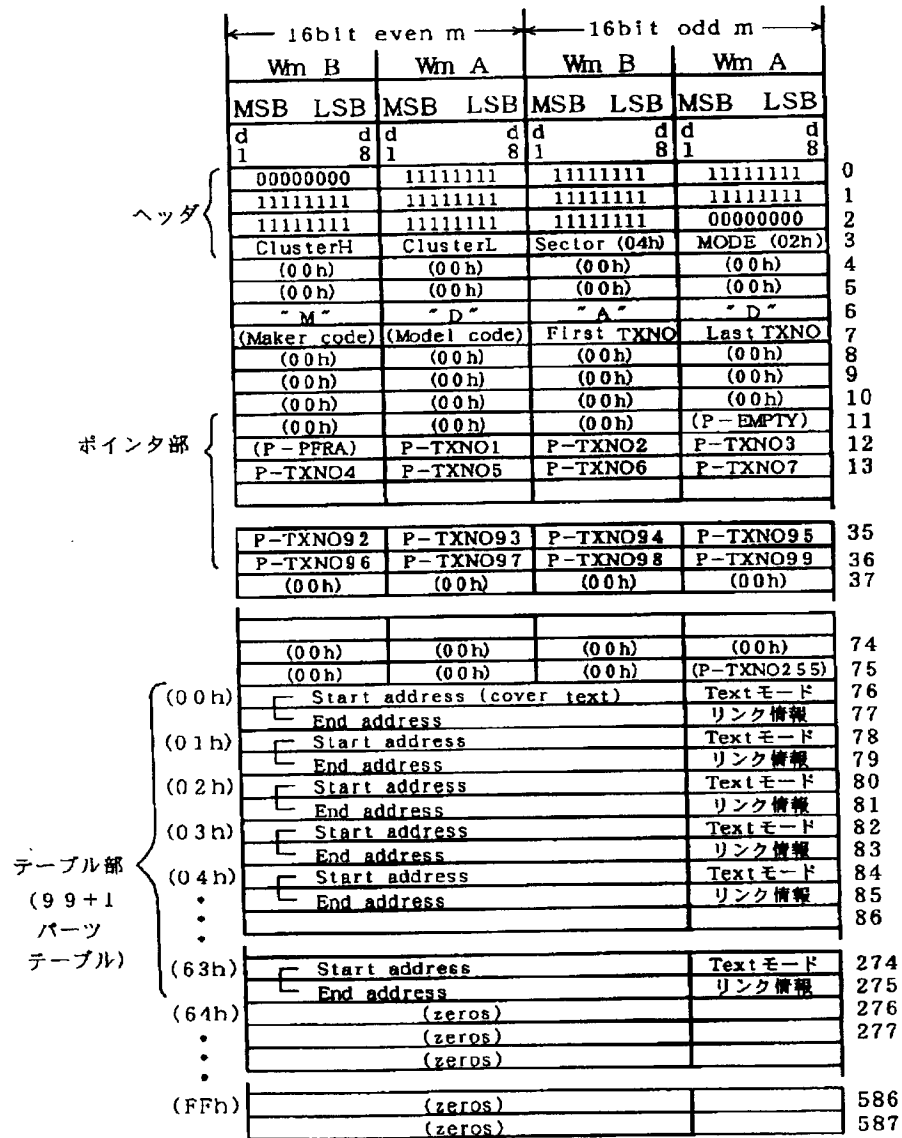 16bit even m 16bit odd m
Wm B Wm A Wm B Wm A
MSB LSB MSB LSB MSB LSB MSB LSB
d d d d d d d d
1 8 1 8 1 8 1 8
00000000 11111111 11111111 11111111 0
11111111 11111111 11111111 11111111 1
ヘッダ
11111111 11111111 11111111 00000000 2
ClusterH ClusterL Sector (04h) MODE (02h) 3
(00h) (00h) (00h) (00h) 4
(00h) (00h) (00h) (00h) 5
"M" "D" "A" "D" 6
(Maker code) (Model code) First TXNO Last TXNO 7
(00h) (00h) (00h) (00h) 8
(00h) (00h) (00h) (00h) 9
(00h) (00h) (00h) (00h) 10
(00h) (00h) (00h) (P-EMPTY) 11
ポインタ部 (P-PFRA) P-TXNO1 P-TXNO2 P-TXNO3 12
P-TXNO4 P-TXNO5 P-TXNO6 P-TXNO7 13
P-TXNO92 P-TXNO93 P-TXNO94 P-TXNO95 35
P-TXNO96 P-TXNO97 P-TXNO98 P-TXNO99 36
(00h) (00h) (00h) (00h) 37
(00h) (00h) (00h) (00h) 74
(00h) (00h) (00h) (P-TXNO255) 75
(00h) Start address (cover text) Textモード 76
End address リンク情報 77
(01h) Start address Textモード 78
End address リンク情報 79
(02h) Start address Textモード 80
End address リンク情報 81
(03h) Start address Textモード 82
End address リンク情報 83
テーブル部
(04h) Start address Textモード 84
End address リンク情報 85
(99+1
86
パーツ
テーブル)
(63h) Start address Textモード 274
End address リンク情報 275
(64h) (zeros) 276
(zeros) 277
(zeros)
(FFh) (zeros) 586
(zeros) 587